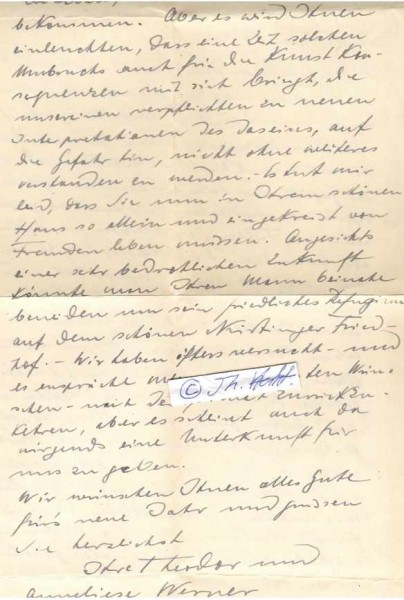 bekommen. Aber es wird Ihnen
einleuchten, dass eine Zeit solchen
Umbruchs auch für die Kunst Kon-
sequenzen mit sich bringt, die
unsereinen verpflichten zu neuen
Interpretationen des Daseins, auf
die Gefahr hin, nicht ohne weiteres
verstanden zu werden. - Es tut mir
leid, dass Sie nun in Ihrem schönen
Haus so allein und eingekreist von
Fremden leben müssen. Angesichts
einer sehr bedrohlichen Zukunft
könnte man Ihren Mann beinahe
beneiden um sein friedliches Refugium
auf dem schönen Nürtinger Fried-
hof. - Wir haben öfters versucht - und
es enspräche ten Wün-
schen - nach zurückzu-
kehren, aber es scheint auch da
nirgends eine Unterkunft für
uns zu geben.
Wir wünschen Ihnen alles Gute
für's neue Jahr und grüssen
Sie herzlichst
Ihre Theodor und
Anneliese Werner
© Th.